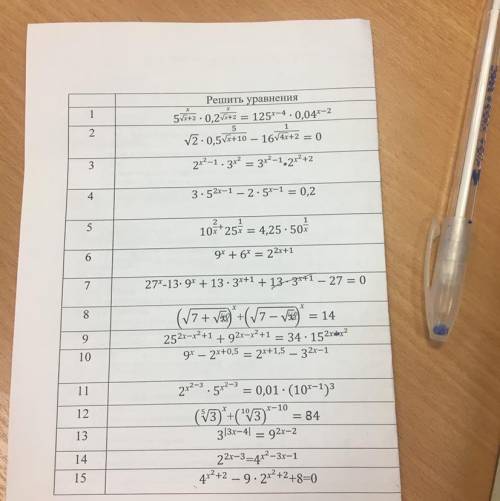 Решить уравнения
1 5^{x/(√x+2)} · 0,2^{x/(√x+2)} = 125^{x−4} · 0,04^{x−2}
2 √2 · 0,5^{5/(4√x+10)} − 16^{1/(√4x+2)} = 0
3 2^{x²−1} · 3^{x²} = 3^{x²−1} · 2^{x²+2}
4 3 · 5^{2x−1} − 2 · 5^{x−1} = 0,2
5 10^{2/x}+25^{1/x} = 4,25 · 50^{1/x}
6 9^x + 6^x = 2^{2x+1}
7 27^x-13· 9^x + 13 · 3^{x+1} + 13 · 3^{x+1} − 27 = 0
8 (√7 + √48)^x+(√7 − √48)^x = 14
9 25^{2x−x²+1} + 9^{2x−x²+1} = 34 · 15^{2x−x²}
10 9^x − 2^{x+0,5} = 2^{x+1,5} − 3^{2x−1}
11 2^{x²−3} · 5^{x²−3} = 0,01 · (10^{x−1})³
12 (⁵√3)^x+(¹⁰√3)^{x−10} = 84
13 3^{|3x−4|} = 9^{2x−2}
14 2^{2x−3}=4^{x²−3x−1}
15 4^{x²+2} − 9 · 2^{x²+2}+8=0